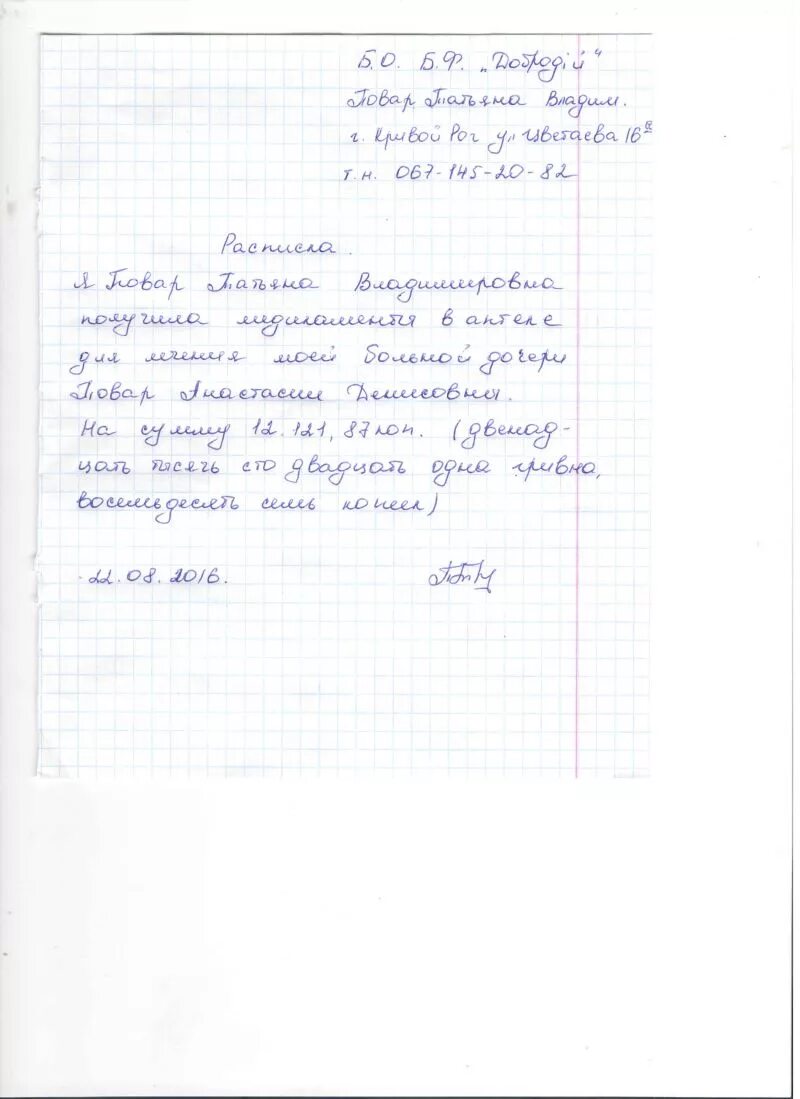 Б.О. Б.Ф. „Добродій“
Повар Татьяна Владим.
г. Кривой Рог ул Цветаева 16
т.н. 067-145-20-82
Расписка.
Я Повар Татьяна Владимировна
получила медикаменты в аптеке
для лечения моей больной дочери
Повар Анастасии Денисовны.
На сумму 12.121,87 коп. (двенад-
цать тысяч сто двадцать одна гривна,
восемьдесять семь копеек)
22.08.2016.